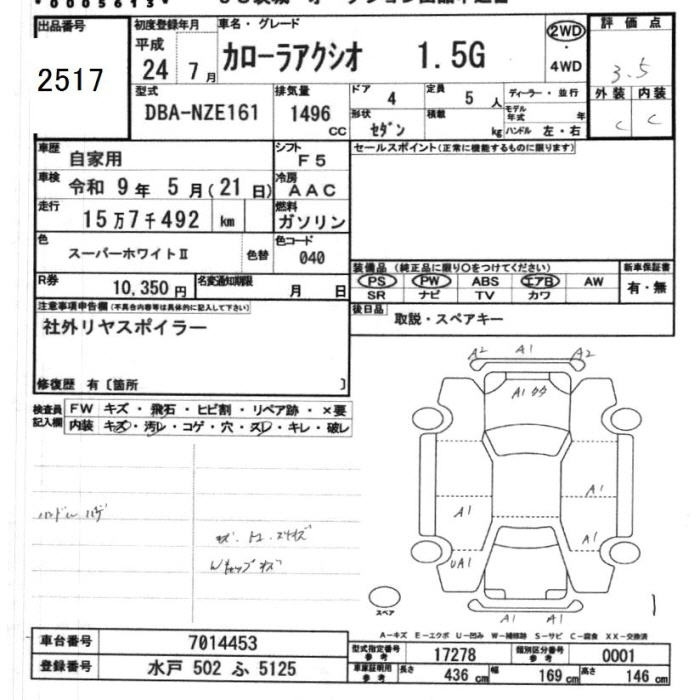 *0005613*
出品番号
2517
初度登録年月
平成
24 7月
車名・グレード
カローラアクシオ 1.5G
2WD
・
4WD
評価点
3.5
外装 内装
C C
型式
DBA-NZE161
排気量
1496
CC
ドア
4
定員
5人
ディーラー・並行
形状
セダン
積載
kg
モデル
年式
年
ハンドル 左・右
車歴
自家用
シフト
F5
車検
令和 9年 5月(21日)
冷房
AAC
走行
15万7千492 km
燃料
ガソリン
色
スーパーホワイトⅡ
色替
色コード
040
R券
10,350円
名変通知期限
月 日
セールスポイント(正常に機能するものに限ります)
装備品 (純正品に限り○をつけてください)
PS PW ABS エアB AW
SR ナビ TV カワ
新車保証書
有・無
後日品
取説・スペアキー
注意事項申告欄(不具合内容等は具体的に記入して下さい)
社外リヤスポイラー
修復歴 有〔箇所 〕
検査員
記入欄
FW キズ・飛石・ヒビ割・リペア跡・×要
内装 キズ・汚レ・コゲ・穴・スレ・キレ・破レ
A2 A1 A2
A1
A1
A1
A1
UA1
A1 A1
スペア
A-キズ E-エクボ U-凹み W-補修跡 S-サビ C-腐食 XX-交換済
車台番号
7014453
登録番号
水戸 502 ふ 5125
型式指定番号
参考
17278
類別区分番号
参考
0001
車庫証明用
参考
長さ
436 cm
幅
169 cm
高さ
146 cm